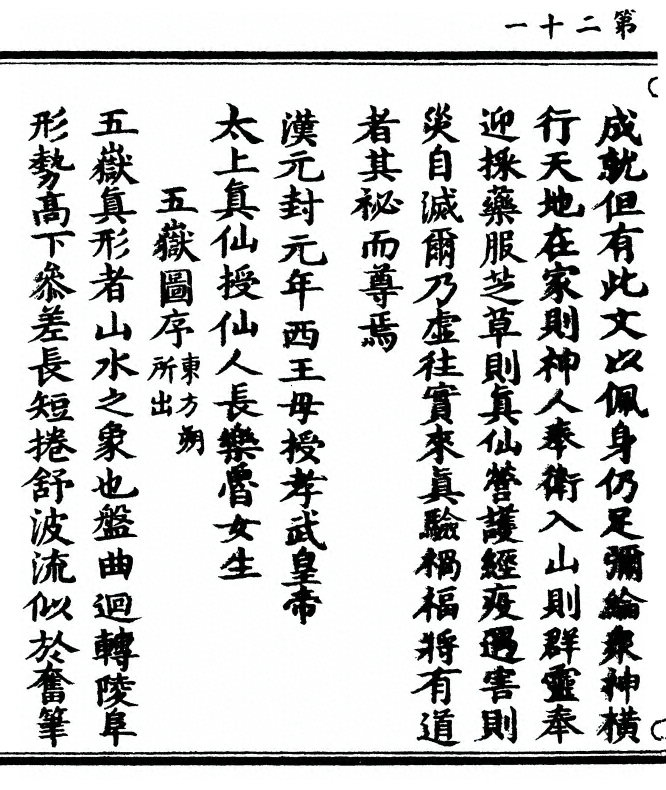 第二十一
成就但有此文以佩身仍足彌綸衆神橫
行天地在家則神人奉衛入山則群靈奉
迎採藥服芝草則真仙營護經疫遇害則
災自滅爾乃虛往實來真驗禍福將有道
者其祕而尊焉
漢元封元年西王母授孝武皇帝
太上真仙授仙人長樂魯女生
五嶽圖序東方朔所出
五嶽真形者山水之象也盤曲迴轉陵阜
形勢高下參差長短捲舒波流似於奮筆